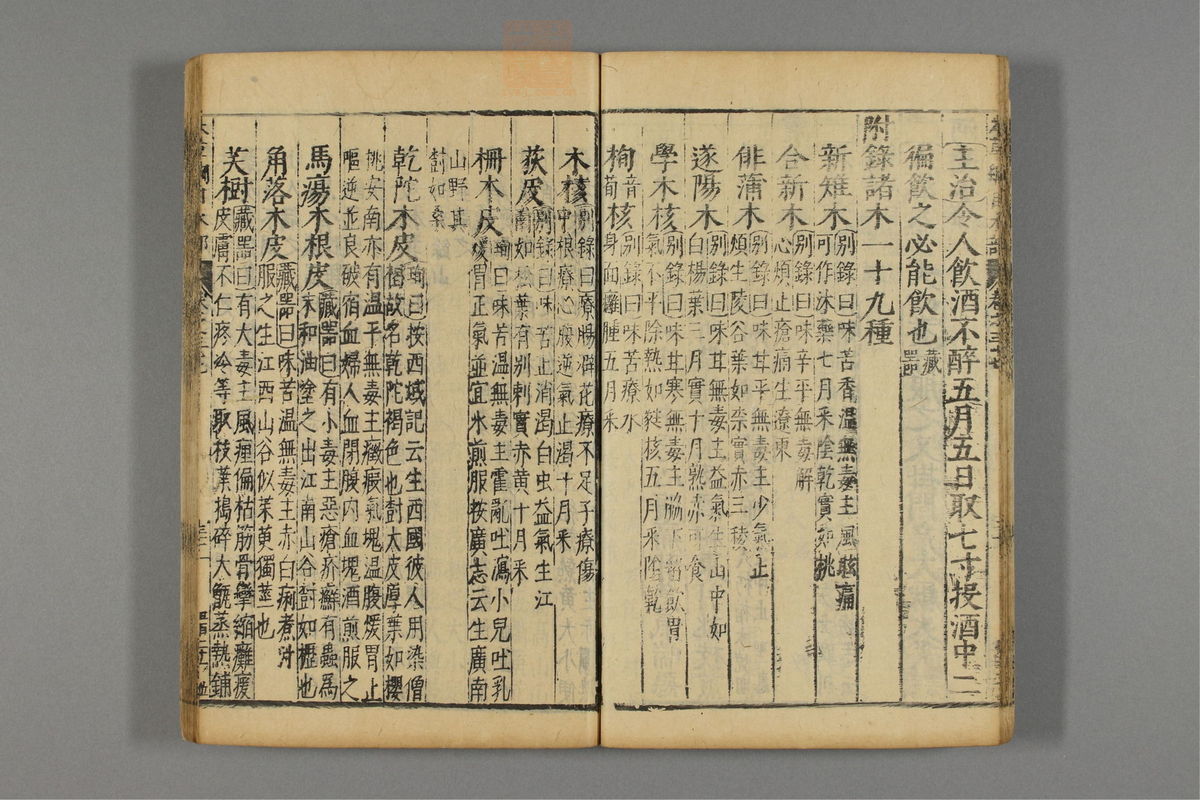 主治令人飲酒不醉五月五日取七寸投酒中二
徧飲之必能飲也藏器
附錄諸木一十九種
新雉木別錄曰味苦香溫無毒主風眩痛
可作沐藥七月采陰乾實如桃
合新木別錄曰味辛平無毒解
心煩止瘡痛生遼東
俳蒲木別錄曰味甘平無毒主少氣止
煩生陵谷葉如柰實赤三稜
遂陽木別錄曰味甘無毒主益氣生山中如
白楊葉三月實十月熟赤可食
學木核別錄曰味甘寒無毒主脇下留飲胃
氣不平除熱如蕤核五月采陰乾
栒音荀核別錄曰味苦療水
身面癰腫五月采
木核別錄曰療腸澼花療不足子療傷
中根療心腹逆氣止渴十月采
荻皮別錄曰味苦止消渴白虫益氣生江
南如松葉有別刺實赤黃十月采
柵木皮珣曰味苦溫無毒主霍亂吐瀉小兒吐乳
煖胃正氣並宜水煎服按廣志云生廣南
山野其
樹如桑
乾陀木皮珣曰按西域記云生西國彼人用染僧
褐故名乾陀褐色也樹大皮厚葉如櫻
桃安南亦有溫平無毒主癥瘕氣塊溫腹煖胃止
嘔逆並良破宿血婦人血閉腹內血塊酒煎服之
馬瘍木根皮藏器曰有小毒主惡瘡疥癬有蟲為
末和油塗之出江南山谷樹如櫪也
角落木皮藏器曰味苦溫無毒主赤白痢煮汁
服之生江西山谷似茱萸獨莖也
芙樹藏器曰有大毒主風痺偏枯筋骨攣縮癱瘓
皮膚不仁疼冷等取枝葉搗碎大甑蒸熱鋪